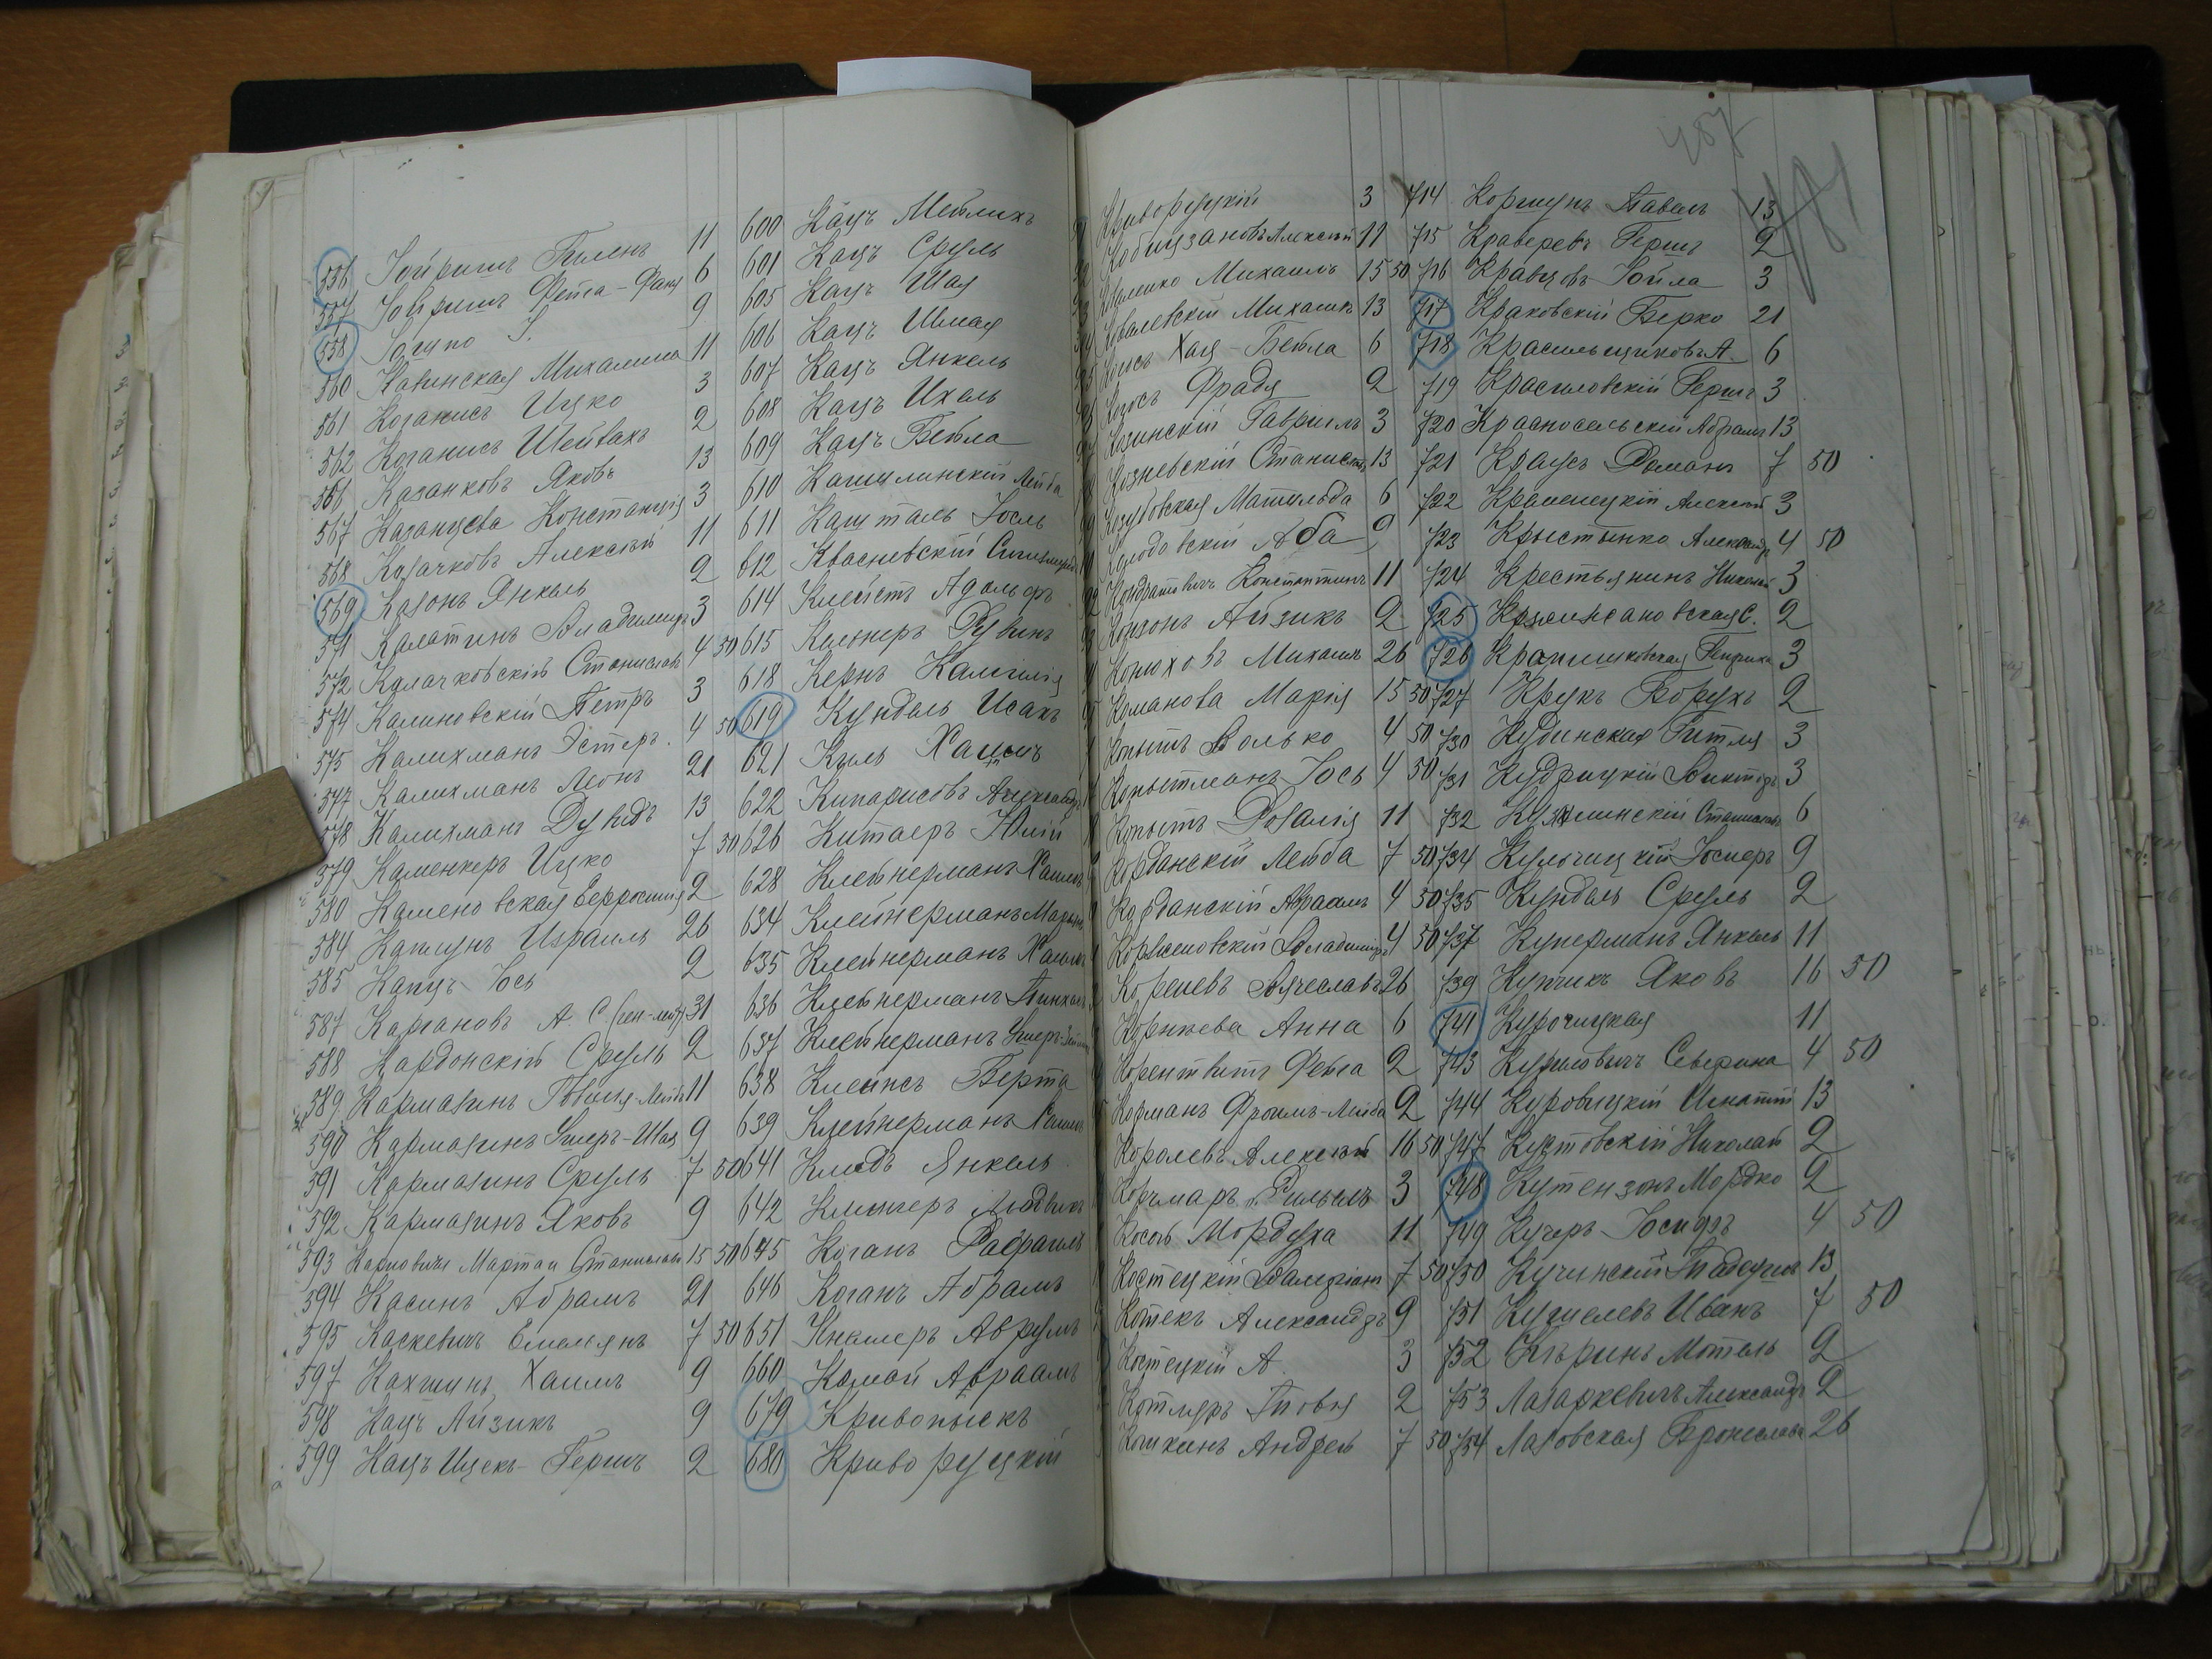 556 Гилень 11
557 Фейга-Фаня 6
558 9
560 Кавинская Михалина 11
561 Коганисъ Ицко 3
562 Коганисъ Шейвахъ 2
566 Казанковъ Яковъ 13
567 Казанцева Констанція 3
568 Казачковъ Алексѣй 11
569 Казонъ Янкель 2
571 Калатинъ Владиміръ 3
572 Калачковскій Станиславъ 4 50
574 Калиновскій Петръ 3
575 Калихманъ Эстеръ 4 50
577 Калихманъ Леонъ 21
578 Калихманъ Дувидъ 13
579 Каменкеръ Ицко 7 50
580 Каменовская 2
584 Каплунъ Израиль 26
585 Капуъ Іось 2
587 Каргановъ А. С. (ген-лейт) 31
588 Кардонскій Сруль 2
589 Кармазинъ 11
590 Кармазинъ Ушеръ-Шая 9
591 Кармазинъ Сруль 7 50
592 Кармазинъ Яковъ 9
593 Карповичи Марта и Станиславъ 15 50
594 Касинъ Абрамъ 21
595 Каскевичъ Емельянъ 7 50
597 Кахтинъ Хаимъ 9
598 Кацъ Айзикъ 9
599 Кацъ Ицекъ-Гершъ 2
600 Кацъ Мейлихъ
601 Кацъ Сруль
605 Кацъ Шая
606 Кацъ Шмая
607 Кацъ Янкель
608 Кацъ Ихель
609 Кацъ Бейла
610 Кашилинскій Лейба
611 Каштель Іосль
612 Квасневскій
614 Клейстъ Адольфъ
615 Кельнеръ Рувинъ
618 Кернъ Камилія
619 Кундель Исакъ
621 Киль Хаимъ
622 Кипарисовъ Александръ
626 Китаеръ Юлій
628 Клейнерманъ Хаимъ
634 Клейнерманъ
635 Клейнерманъ
636 Клейнерманъ Пинхасъ
637 Клейнерманъ
638 Клейнсъ Берта
639 Клейнерманъ Хаимъ
641 Клидъ Янкель
642 Клингеръ Людвикъ
645 Коганъ Рафаилъ
646 Коганъ Абрамъ
651 Аврумъ
660 Авраамъ
679 Кривопыскъ
680 Криворуцкій
Криворуцкій 3
Кобищановъ Алексѣй 11
Михаилъ 15 50
Ковалевскій Михаилъ 13
Когосъ Хая-Бейла 6
Когосъ Фрадя 2
Козинскій Гавріилъ 3
Козневскій Станиславъ 13
Козубовская Матильда 6
Аба 9
Кондратовичъ Константинъ 11
Конзонъ Айзикъ 2
Конюховъ Михаилъ 26
Команова Марія 15 50
Копытъ Волько 4 50
Копытманъ Іось 4 50
Копытъ Розалія 11
Корданскій Лейба 7 50
Корданскій Авраамъ 4 50
Владиміръ 4 50
Кореневъ Вячеславъ 26
Корнѣева Анна 6
Корентвитъ Фейга 2
Корманъ Фроимъ-Лейба 2
Королевъ Алексѣй 16 50
Корчмаръ 3
Косой Мордуха 11
Костецкій Валеріанъ 7 50
Котекъ Александръ 9
Костецкій А. 3
Котляръ Товія 2
Кошкинъ Андрей 7 50
457
714 Коршунъ Павелъ 13
715 Краверевъ Гершъ 2
716 Кравцовъ Іойла 3
717 Краковскій Берко 21
718 Красильщиковъ А. 6
719 Красиловскій Гершъ 3
720 Красносельскій Абрамъ 13
721 Краусъ Романъ 7 50
722 Кременецкій Алексѣй 3
723 Александръ 4 50
724 Крестьянинъ Николай 3
725 С. 2
726 3
727 Крукъ Борухъ 2
730 Кудинская Гитля 3
731 Кудрицкій Викторъ 3
732 Станиславъ 6
734 9
735 Кундель Сруль 2
737 Куперманъ Янкель 11
739 Купчикъ Яковъ 16 50
741 Курочицкая 11
743 Куриловичъ Северина 4 50
744 Куровицкій Игнатій 13
747 Куртовскій Николай 2
748 Кутензонъ Мордко 2
749 Кучеръ Іосифъ 4 50
750 Кучинскій 13
751 Кушелевъ Иванъ 7 50
752 Мотель 2
753 Лазаркевичъ Александръ 2
754 Лазовская Бронислава 26